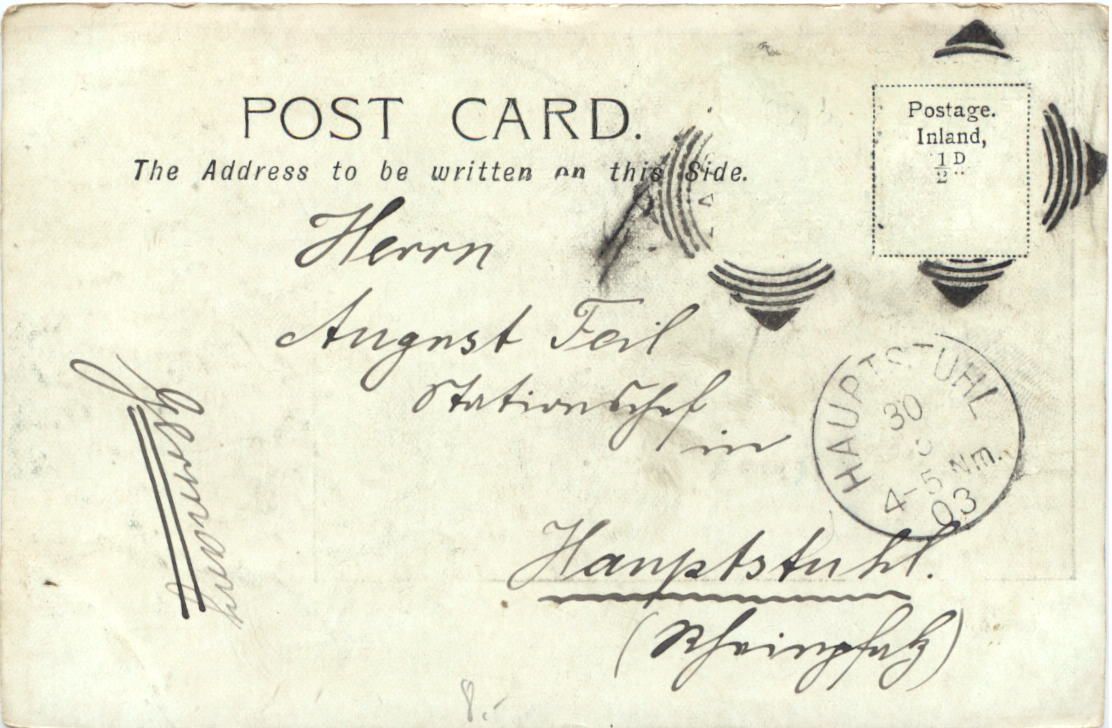 POST CARD.
The Address to be written on this Side.
Postage.
Inland,
½ D
Herrn
August Feil
Stationschef
in
Hauptstuhl.
(Rheinpfalz)
HAUPTSTUHL
30
4-5 Nm.
03
Germany
8.